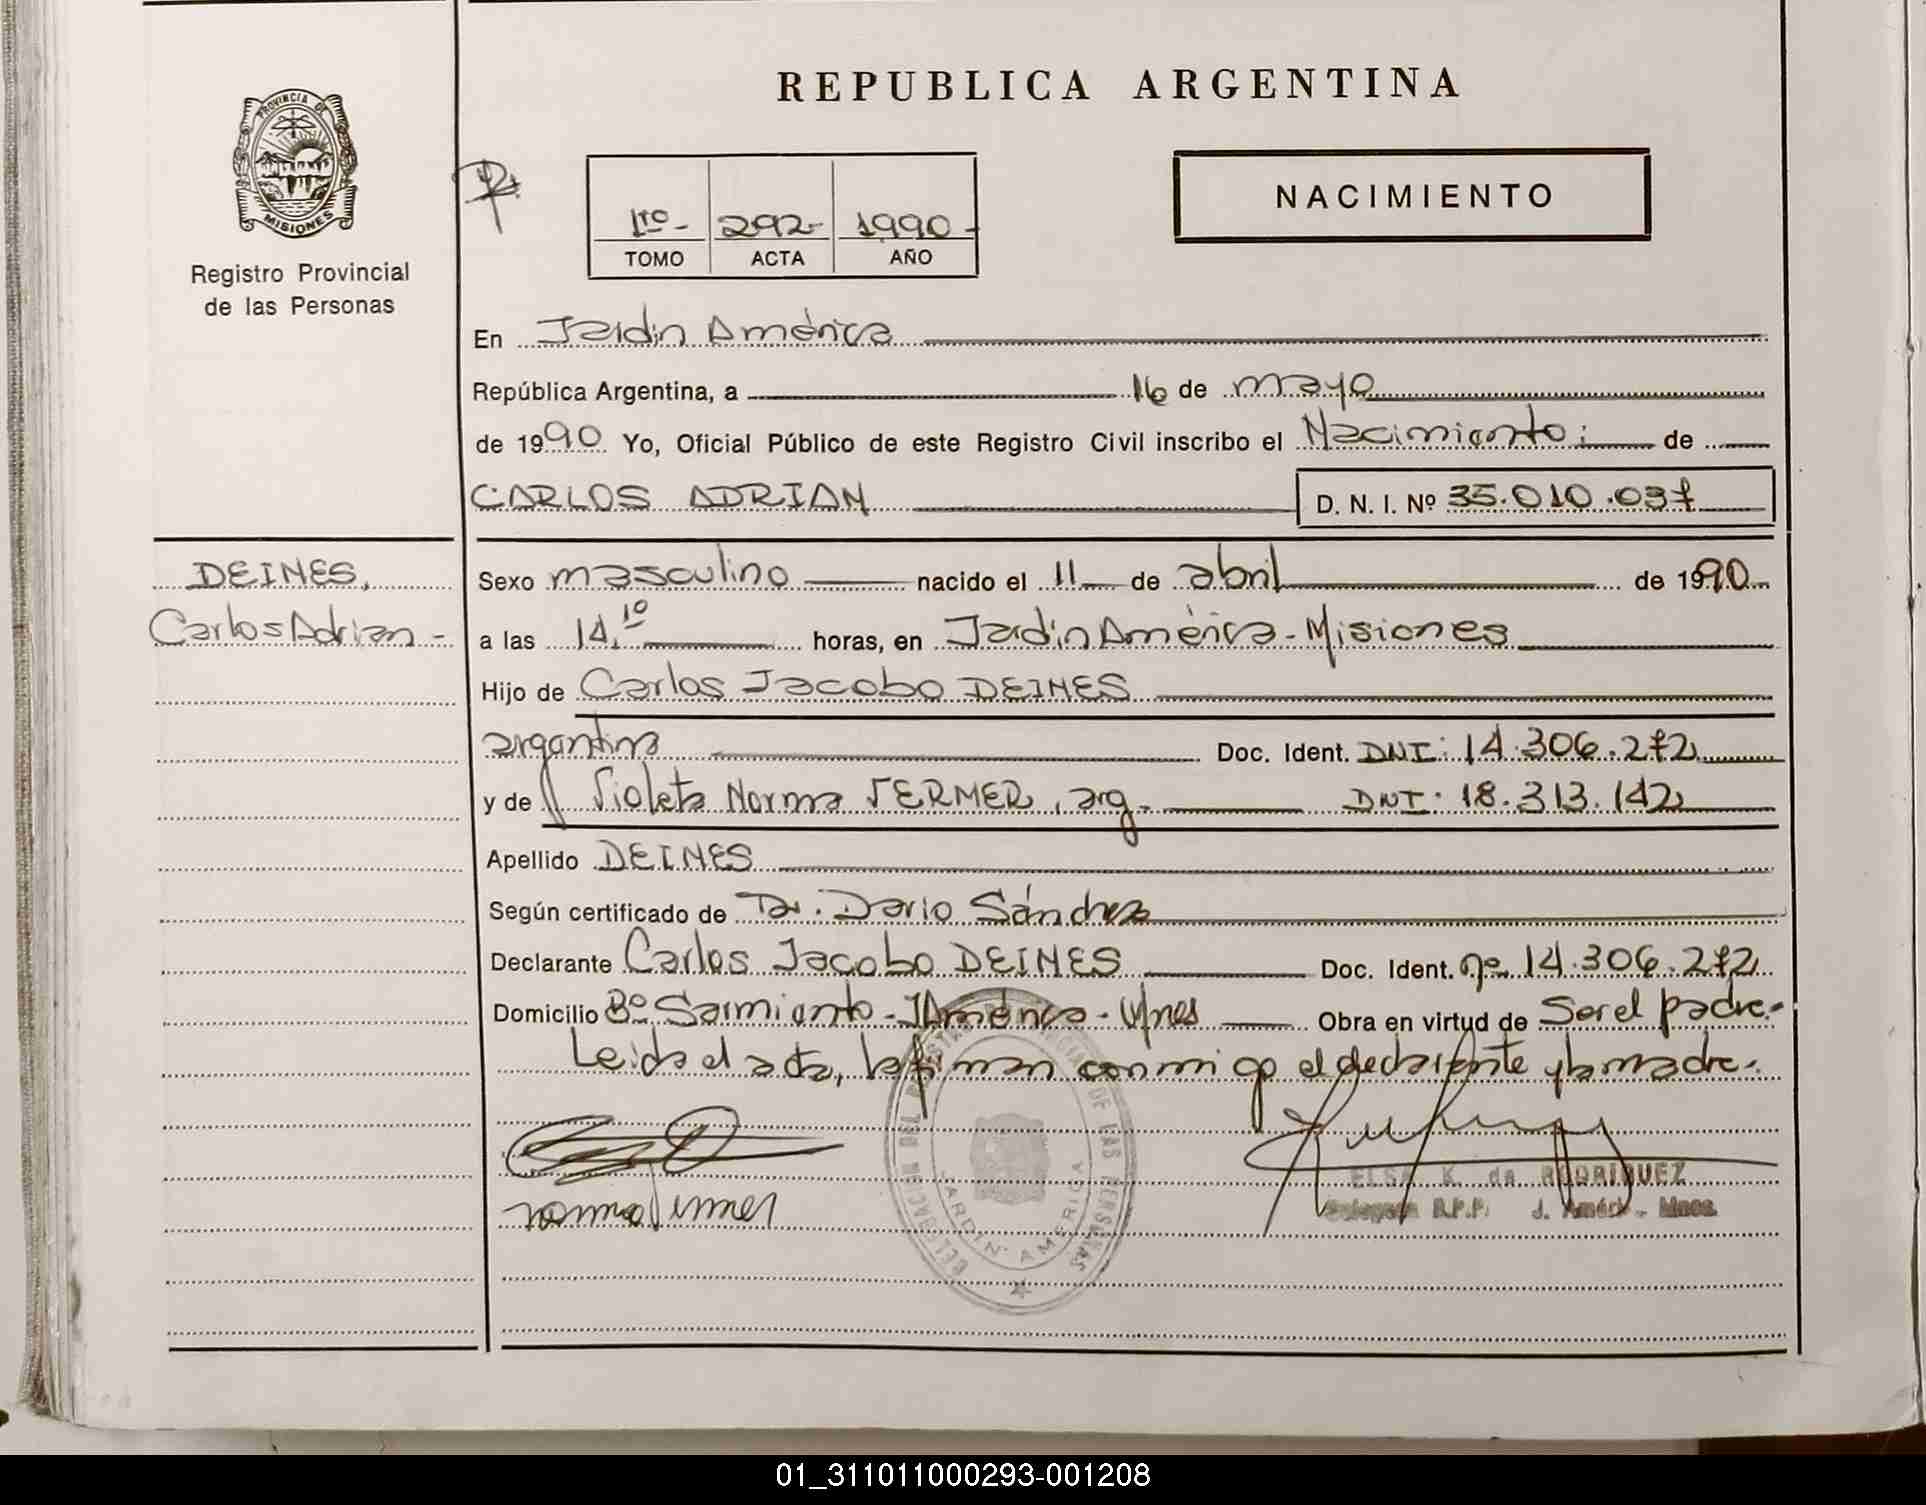 REPUBLICA ARGENTINA
PROVINCIA DE
MISIONES
Registro Provincial
de las Personas
1ro - 292 - 1990 -
TOMO ACTA AÑO
NACIMIENTO
En Jardin América
República Argentina, a 16 de mayo
de 1990 Yo, Oficial Público de este Registro Civil inscribo el Nacimiento: de
CARLOS ADRIAN D. N. I. Nº 35.010.037
DEINES,
Carlos Adrian -
Sexo masculino nacido el 11 de abril de 1990
a las 14,10 horas, en Jardin América - Misiones
Hijo de Carlos Jacobo DEINES
argentino Doc. Ident. DNI: 14.306.272
y de Violeta Norma FERMER, arg. DNI: 18.313.142
Apellido DEINES
Según certificado de Dr. Dario Sánchez
Declarante Carlos Jacobo DEINES Doc. Ident. nº 14.306.272
Domicilio Bº Sarmiento - J América - Mnes Obra en virtud de Ser el padre.-
Leida el acta, la firman conmigo el declarante y la madre.-
DELEGACION DEL REGISTRO PROVINCIAL DE LAS PERSONAS
JARDIN AMERICA
ELSA K. de RODRIGUEZ
R.P.P. J. Améric - Mnes.
01_311011000293-001208